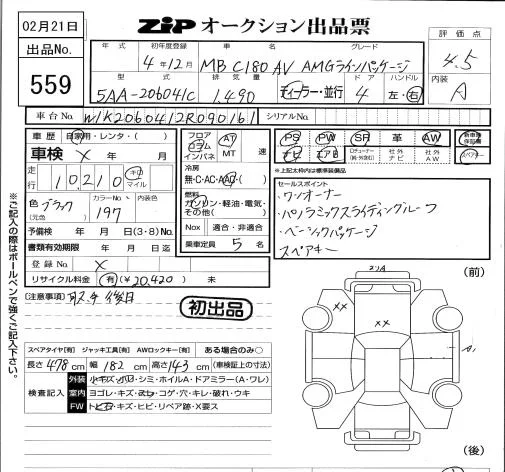 02月21日
ZIP オークション出品票
出品No.
559
年式 初年度登録 車名 グレード
4年12月 MB C180 AV AMGラインパッケージ
型式 排気量 ドア ハンドル
5AA-206041C 1,490 ディーラー・並行 4 左・右
評価点
4.5
内装
A
車台No. W1K2060412R090161 シリアルNo.
車歴 自家用・レンタ・( )
車検 X 年 月
走行 10,210 キロ マイル
色 ブラック カラーNo. 197
(元色)
予備検 年 月 日(3・8)No.
書類有効期限 年 月 日迄
登録No. X
リサイクル料金 有(¥20,420) 未
フロア コラム インパネ AT MT 速
冷房
無・C・AC・AAC・( )
燃料
ガソリン・軽油・電気・その他( )
Nox 適合・非適合
乗車定員 5 名
PS PW SR 革 AW
ナビ エアB 社外ナビ 社外AW
スペアキー
*上記太枠内は標準装備品
セールスポイント
・ワンオーナー
・パノラミックスライディングルーフ
・ベーシックパッケージ
スペアキー
注意事項
初出品
スペアタイヤ[有] ジャッキ工具[有] AWロックキー[有] ある場合のみ○
長さ 478 cm 幅 182 cm 高さ 143 cm (車検証上の寸法)
検査記入
外装 小キズ・小凹・シミ・ホイルA・ドアミラー(A・ワレ)
室内 ヨゴレ・キズ・スレ・コゲ・穴・キレ・破れ・ウキ
FW トビ石・キズ・ヒビ・リペア跡・X要ス
(前)
XX
XX
A1
(後)
※ご記入の際はボールペンで強くご記入下さい。